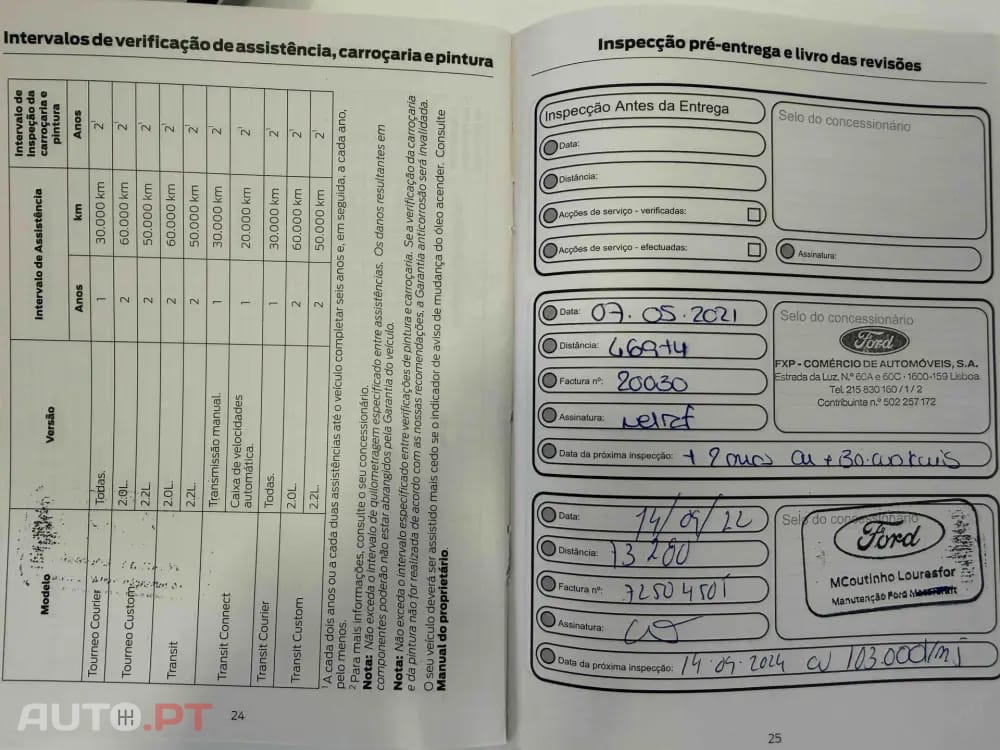 Intervalos de verificação de assistência, carroçaria e pintura
Modelo
Versão
Intervalo de Assistência
Intervalo de Inspeção da carroçaria e pintura
Anos
km
Anos
Tourneo Courier
Todas.
1
30.000 km
2¹
Tourneo Custom
2.0L.
2
60.000 km
2¹
2.2L.
2
50.000 km
2¹
Transit
2.0L.
2
60.000 km
2¹
2.2L.
2
50.000 km
2¹
Transit Connect
Transmissão manual.
1
30.000 km
2¹
Caixa de velocidades automática.
1
20.000 km
2¹
Transit Courier
Todas.
1
30.000 km
2¹
Transit Custom
2.0L.
2
60.000 km
2¹
2.2L.
2
50.000 km
2¹
¹ A cada dois anos ou a cada duas assistências até o veículo completar seis anos e, em seguida, a cada ano,
pelo menos.
² Para mais informações, consulte o seu concessionário.
Nota: Não exceda o intervalo de quilometragem especificado entre assistências. Os danos resultantes em
componentes poderão não estar abrangidos pela Garantia do veículo.
Nota: Não exceda o intervalo especificado entre verificações de pintura e carroçaria. Se a verificação da carroçaria
e da pintura não for realizada de acordo com as nossas recomendações, a Garantia anticorrosão será invalidada.
O seu veículo deverá ser assistido mais cedo se o indicador de aviso de mudança do óleo acender. Consulte
Manual do proprietário.
24
AUTO.PT
Inspecção pré-entrega e livro das revisões
Inspecção Antes da Entrega
Data:
Distância:
Acções de serviço - verificadas:
Acções de serviço - efectuadas:
Selo do concessionário
Assinatura:
Data: 07.05.2021
Distância: 46974
Factura nº: 20030
Assinatura:
Data da próxima inspecção: + 2 anos ou + 30.000 kms
Selo do concessionário
Ford
FXP - COMÉRCIO DE AUTOMÓVEIS, S.A.
Estrada da Luz, N.º 60A e 60C · 1600-159 Lisboa
Tel. 215 830 160 / 1 / 2
Contribuinte n.º 502 257 172
Data: 14/09/22
Distância: 73280
Factura nº: 72504501
Assinatura:
Data da próxima inspecção: 14.09.2024 ou 103.000
Selo do concessionário
Ford
MCoutinho Louresfor
Manutenção Ford
25